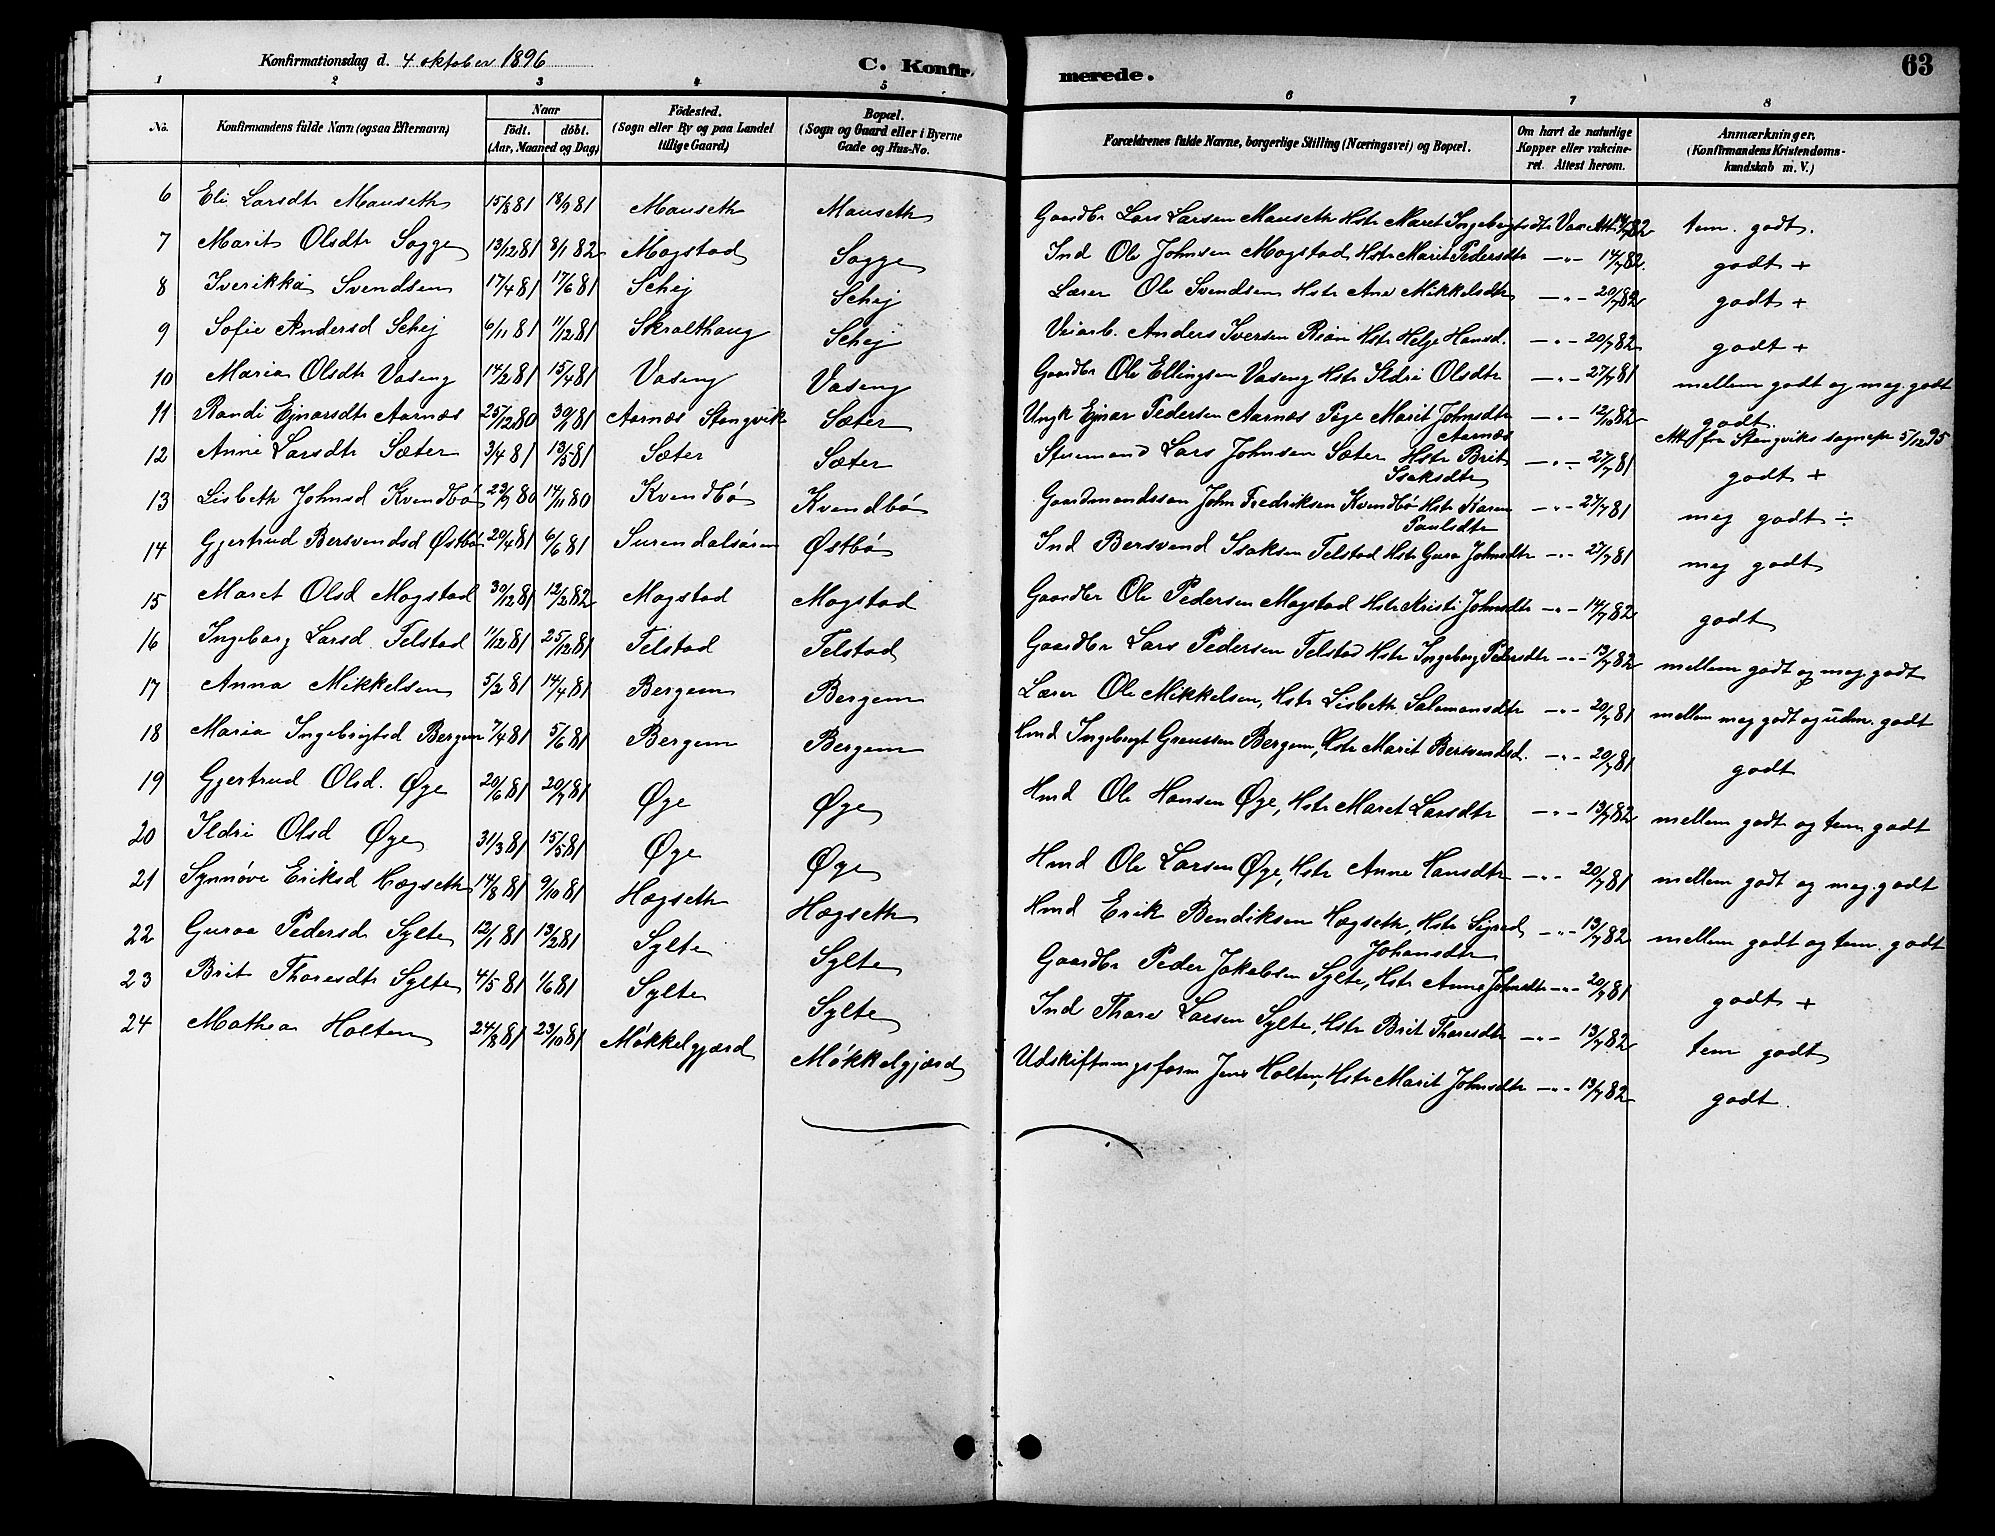 Konfirmationsdag d. 4 oktober 1896
C. Konfirmerede.
63
1 2 3 4 5 6 7 8
No.
Konfirmandens fulde Navn (ogsaa Efternavn)
Naar
födt. döbt.
(Aar, Maaned og Dag)
Födested.
(Sogn eller By og paa Landet
tillige Gaard)
Bopæl.
(Sogn og Gaard eller i Byerne
Gade og Hus-No.
Forældrenes fulde Navne, borgerlige Stilling (Næringsvei) og Bopæl.
Om havt de naturlige
Kopper eller vakcine-
ret. Attest herom.
Anmærkninger,
(Konfirmandens Kristendoms-
kundskab m. V.)
6 Eli Larsdtr Mauseth 15/8 81 18/9 81 Mauseth Mauseth Gaardbr Lars Larsen Mauseth Hstr Maret Ingebrigtsdtr Vax Att 14/7 82 tem. godt.
7 Marit Olsdtr Sogge 13/12 81 8/1 82 Mogstad Sogge Ind Ole Johnsen Mogstad Hstr Marit Pedersdtr -"- 14/7 82. godt +
8 Iverikka Svendsen 17/4 81 17/6 81 Schej Schej Lærer Ole Svendsen Hstr Ane Mikkelsdtr -"- 20/7 82 godt +
9 Sofie Andersd Schej 6/11 81 11/12 81 Skralthaug Schej Veiarb. Anders Iversen Rian Hstr Helge Hansd. -"- 20/7 82 godt +
10 Maria Olsdtr Vaseng 14/2 81 15/4 81 Vaseng Vaseng Gaardbr Ole Ellingsen Vaseng Hstr Ildri Olsdtr -"- 27/7 81 mellem godt og meg. godt
11 Randi Ejnarsdtr Aarnæs 25/12 80 30/1 81 Aarnæs Stangvik Sæter Ungk Ejnar Pedersen Aarnæs Pige Marit Johnsdtr -"- 12/10 82 godt.
Aarnæs Att fra Stangviks sognepr 5/12 95
12 Anne Larsdtr Sæter 3/4 81 13/5 81 Sæter Sæter Sturmand Lars Johnsen Sæter Hstr Brit -"- 27/7 81 godt +
Isaksdtr
13 Lisbeth Johnsd Kvendbø 23/9 80 14/11 80 Kvendbø Kvendbø Gaardmandssøn John Fredriksen Kvendbø Hstr Karen -"- 27/7 81 meg godt ÷
Paulsdtr
14 Gjertrud Bersvendsd Østbø 20/4 81 6/6 81 Surendalsøren Østbø Ind Bersvend Isaksen Telstad Hstr Guro Johnsdtr -"- 27/7 81 meg godt
15 Maret Olsd Mogstad 30/12 81 12/2 82 Mogstad Mogstad Gaardbr Ole Pedersen Mogstad Hstr Kristi Johnsdtr -"- 14/7 82 godt
16 Ingeborg Larsd. Telstad 11/12 81 25/12 81 Telstad Telstad Gaardbr Lars Pedersen Telstad Hstr Ingeborg Pedersdtr -"- 13/7 82 mellem godt og meg. godt
17 Anna Mikkelsen 5/2 81 14/4 81 Bergem Bergem Lærer Ole Mikkelsen, Hstr Lisbeth Salamonsdtr -"- 20/7 81 mellem meg godt og udm. godt
18 Maria Ingebrigtsd Bergem 7/4 81 5/6 81 Bergem Bergem Hmd Ingebrigt Graussen Bergem, Hstr Marit Bersvendsd. -"- 20/7 81 godt
19 Gjertrud Olsd. Øye 20/6 81 20/7 81 Øye Øye Hmd Ole Hansen Øye, Hstr Maret Larsdtr -"- 13/7 82 mellem godt og tem godt
20 Ildri Olsd Øye 31/3 81 15/5 81 Øye Øye Hmd Ole Larsen Øye, Hstr Anne Hansdtr -"- 20/7 81 mellem godt og meg. godt
21 Synnøve Eriksd Hægseth 14/8 81 9/10 81 Hægseth Hægseth Hmd Erik Bendiksen Hægseth, Hstr Sigrid -"- 13/7 82 mellem godt og tem. godt
Johansdtr
22 Guroe Pedersd Sylte 12/1 81 13/2 81 Sylte Sylte Gaardbr Peder Jakobsen Sylte, Hstr Anne Johnsdtr -"- 20/7 81 godt +
23 Brit Thoresdtr Sylte 4/5 81 1/6 81 Sylte Sylte Ind Thore Larsen Sylte, Hstr Brit Thoresdtr -"- 13/7 82 tem godt
24 Mathea Holten 24/8 81 23/10 81 Møkkelgjærd Møkkelgjærd Udskiftningsform Jens Holten, Hstr Marit Johnsdtr -"- 13/7 82 godt.